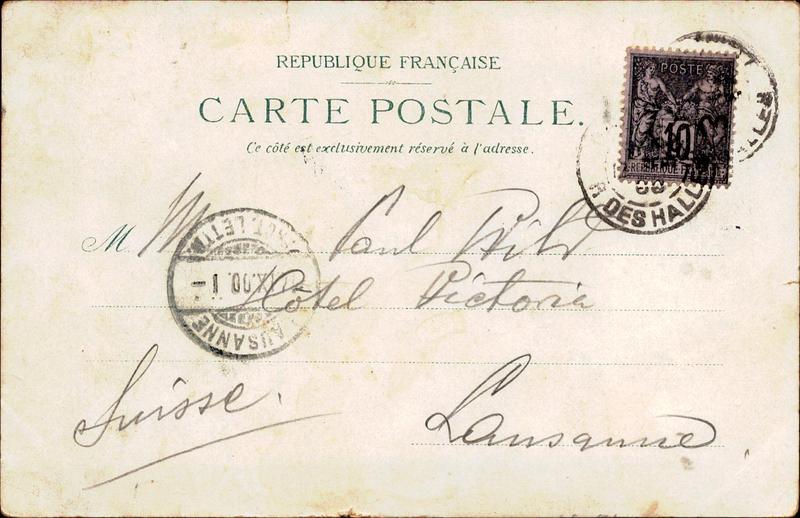 REPUBLIQUE FRANÇAISE
CARTE POSTALE.
Ce côté est exclusivement réservé à l'adresse.
POSTE
10
REPUBLIQUE FRANÇAISE
R DES HALLES
00
M. Paul Wild
Hôtel Victoria
Suisse. Lausanne.
LETTR
X.00.
LAUSANNE